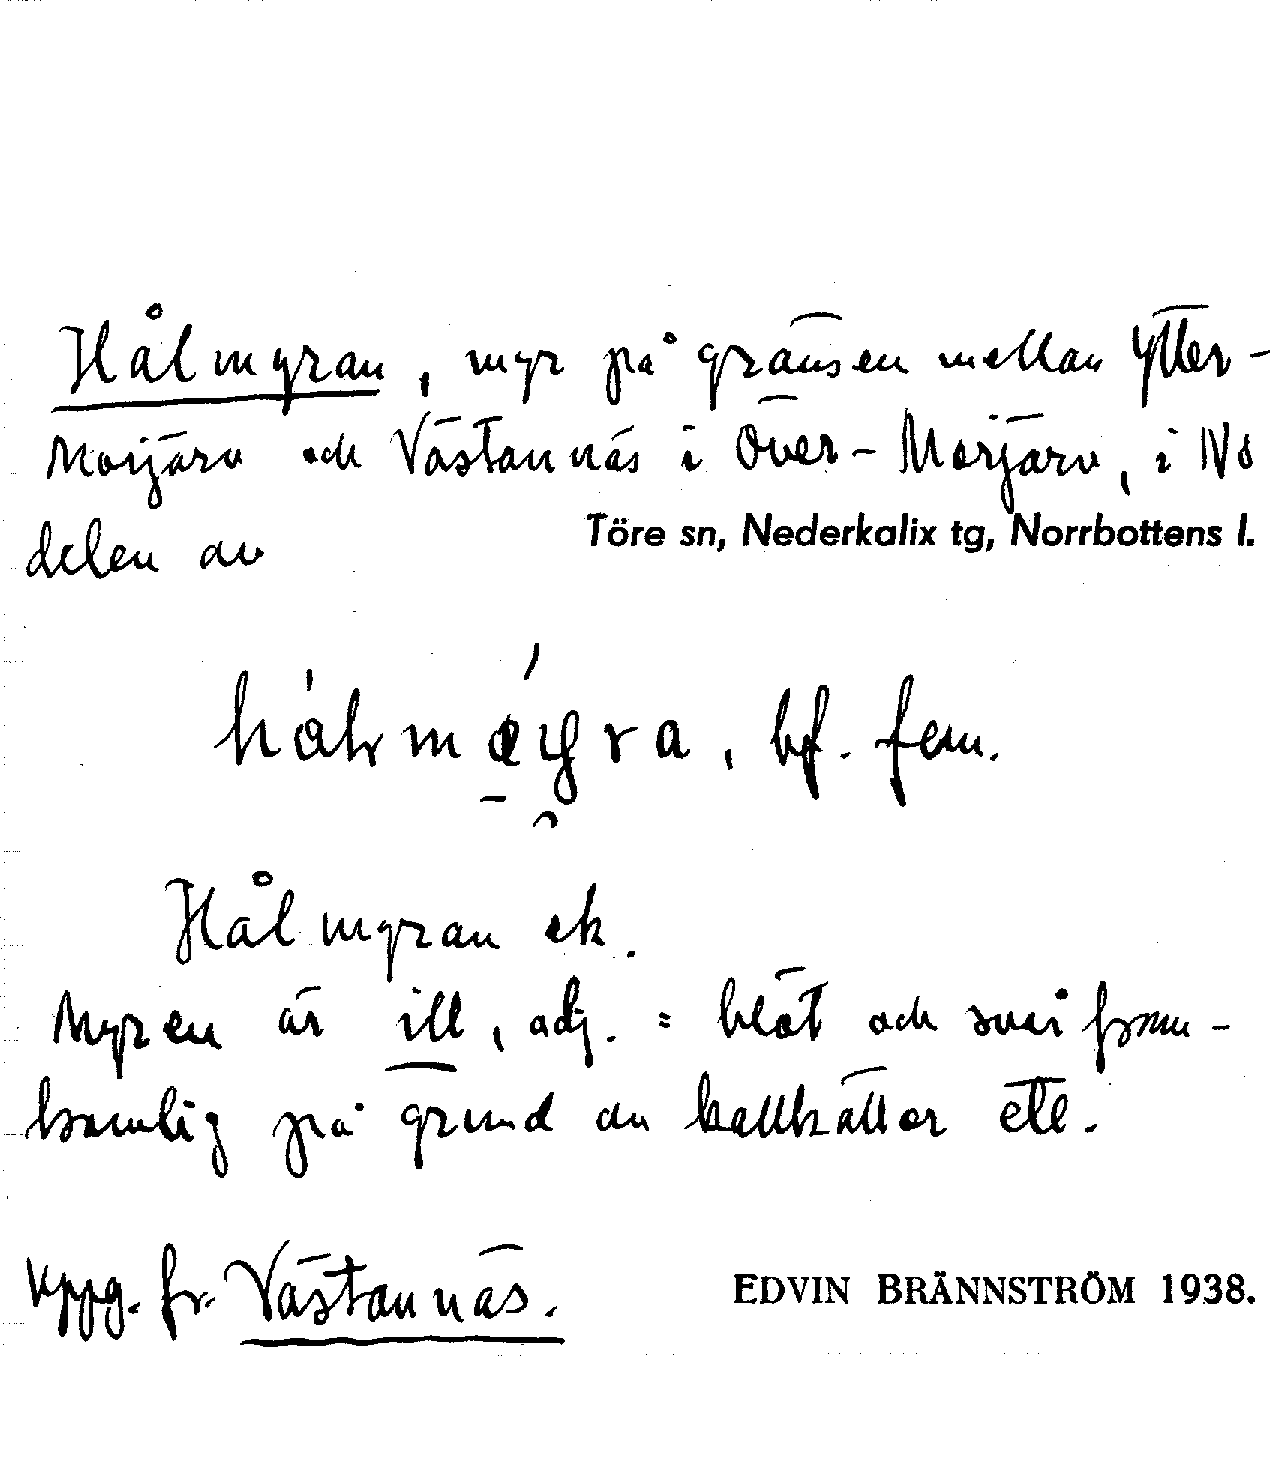 Hålmyran, myr på gränsen mellan Ytter-
Morjärv och Västannäs i Över-Morjärv, i NÖ
delen av Töre sn, Nederkalix tg, Norrbottens l.
bf. fem.
Hålmyran ek.
Myren är ill, adj. = blöt och svår fram-
komlig på grund av kallkällor etc.
Uppg. fr. Västannäs. EDVIN BRÄNNSTRÖM 1938.